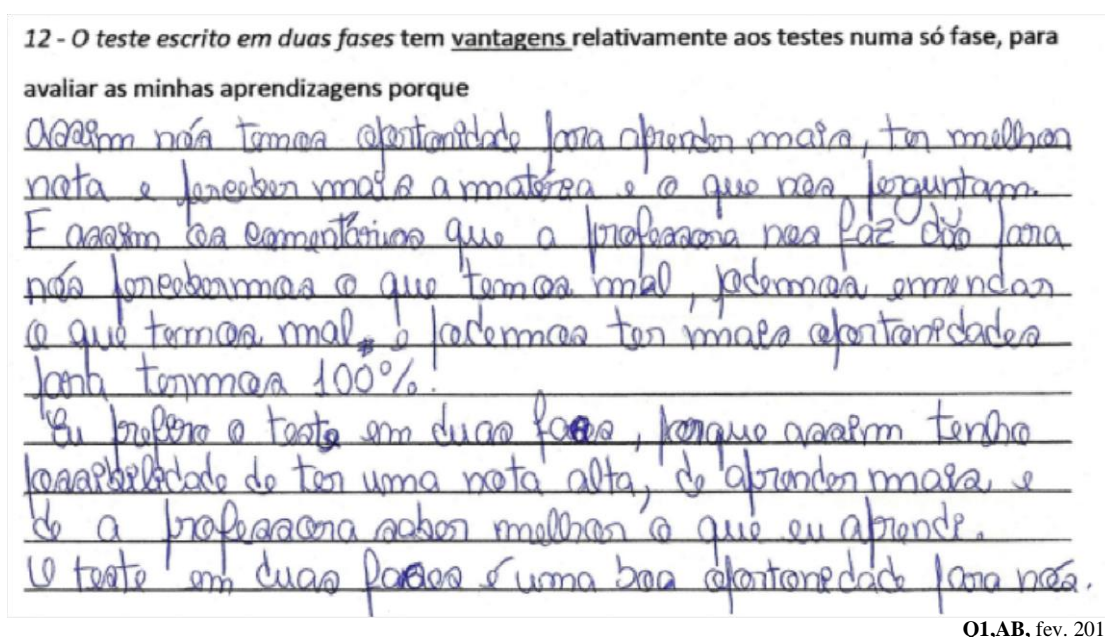 12 - O teste escrito em duas fases tem vantagens relativamente aos testes numa só fase, para
avaliar as minhas aprendizagens porque
assim nós temos oportonidade para aprender mais, ter melhor
nota e perceber mais a matéria e o que nos perguntam.
E assim os comentários que a professora nos faz dão para
nós percebermos o que temos mal, podemos emendar
o que temos mal e podemos ter mais oportonidades
para termos 100%!
Eu prefiro o teste em duas fases, porque assim tenho
possibilidade de ter uma nota alta, de aprender mais e
de a professora saber melhor o que eu aprendi.
O teste em duas fases é uma boa oportonidade para nós.
O1,AB, fev. 201